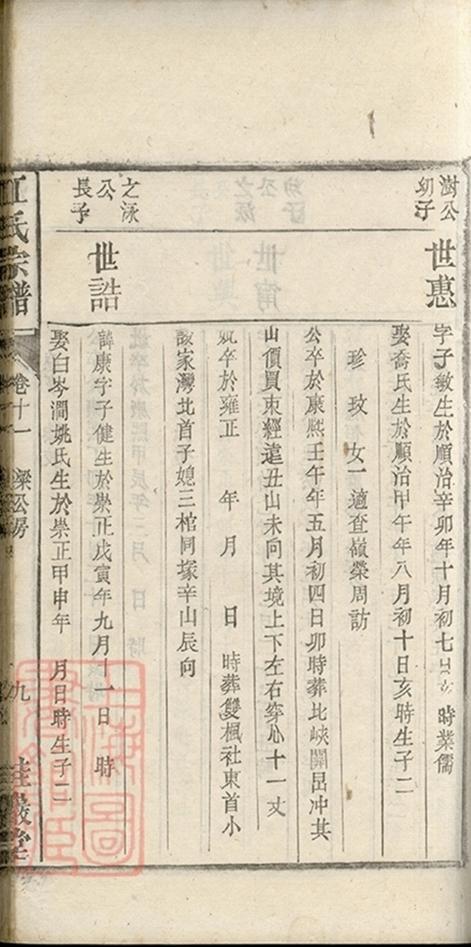 澍公
幼子
世惠
字子敏生於順治辛卯年十月初七日亥 時業儒
娶喬氏生於順治甲午年八月初十日亥時生子二
珍 玫 女一適查嶺榮周訪
公卒於康熙壬午年五月初四日卯時葬北峽關邑冲其
山價買東經遠丑山未向其境上下左右穿心十一丈
妣卒於雍正 年 月 日 時葬雙楓社東首小
談家灣北首子媳三棺同塚辛山辰向
之泳
公
長子
世誥
諱康字子健生於崇正戊寅年九月十一日 時
娶白岑澗姚氏生於崇正甲申年 月日時生子二
江氏宗譜
卷十一
公房
九